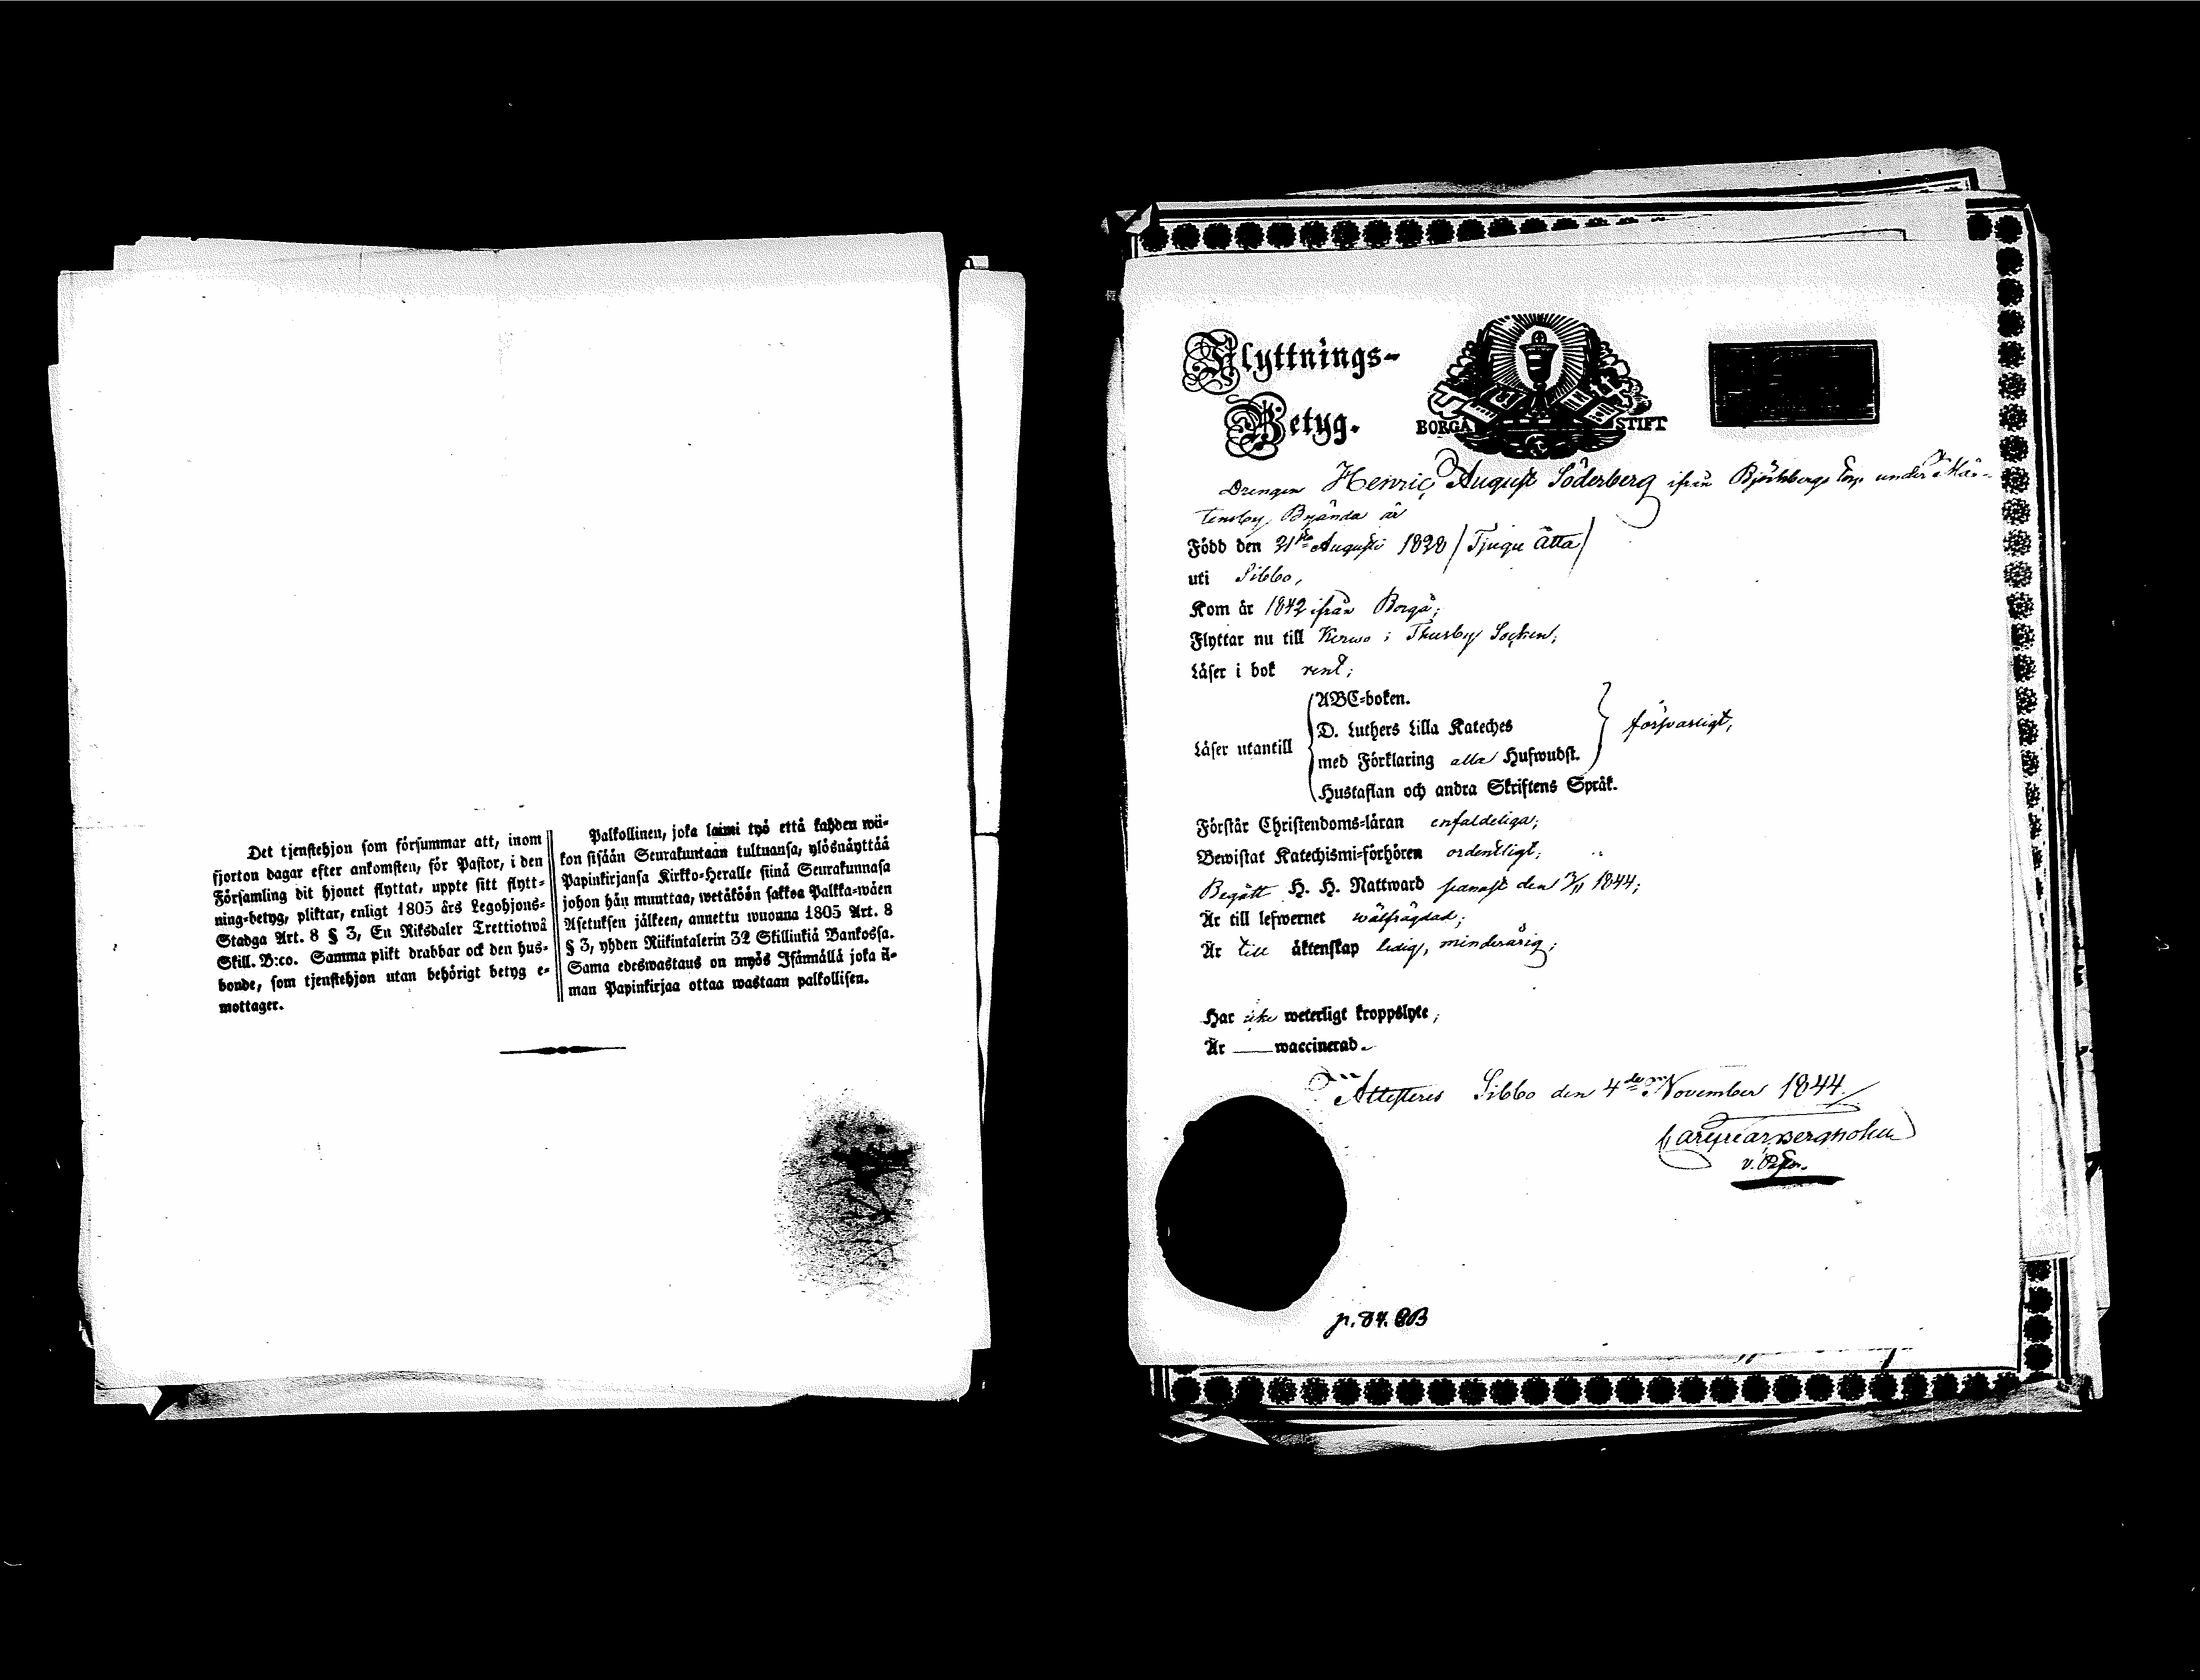 Det tjenstehjon som försummar att, inom
fjorton dagar efter ankomsten, för Pastor, i den
Församling dit hjonet flyttat, uppte sitt flytt-
ning-betyg, pliktar, enligt 1805 års Legohjons-
Stadga Art. 8 § 3, En Riksdaler Trettiotwå
Skill. B:co. Samma plikt drabbar ock den hus-
bonde, som tjenstehjon utan behörigt betyg e-
mottager.
Palkollinen, joka laimi lyö että kahden wii-
kon sisään Seurakuntaan tultuansa, ylösnäyttää
Papinkirjansa Kirkko-Heralle siinä Seurakunnasa
johon hän muuttaa, wetäköön sakkoa Palkka-wäen
Asetuksen jälkeen, annettu wuonna 1805 Art. 8
§ 3, yhden Riikintalerin 32 Skillinkiä Bankossa.
Sama edeswastaus on myös Isännällä joka il-
man Papinkirjaa ottaa wastaan palkollisen.
Flyttnings-
Betyg.
BORGÅ STIFT
Drengen Henric August Söderberg ifrån Björkbergs Torp under Mår-
tensby, Brända är
Född den 21ste Augusti 1828 (Tjugu Åtta)
uti Sibbo,
Kom år 1842 ifrån Borgå;
Flyttar nu till Kerwo i Thusby Socken;
Läser i bok rent;
Läser utantill
ABC-boken.
D. Luthers Lilla Kateches
med Förklaring alla Hufwudst.
Hustaflan och andra Skriftens Språk.
försvarligt,
Förstår Christendoms-läran enfaldeliga;
Bewistat Katechismi-förhören ordentligt;
Begått H. H. Nattward senast den 3/11 1844;
Är till lefwernet wälfrägdad;
Är till äktenskap ledig, minderårig;
Har icke weterligt kroppslyte;
Är — waccinerad.
Attesteres Sibbo den 4de November 1844.
v. Pastor.
p. 84.